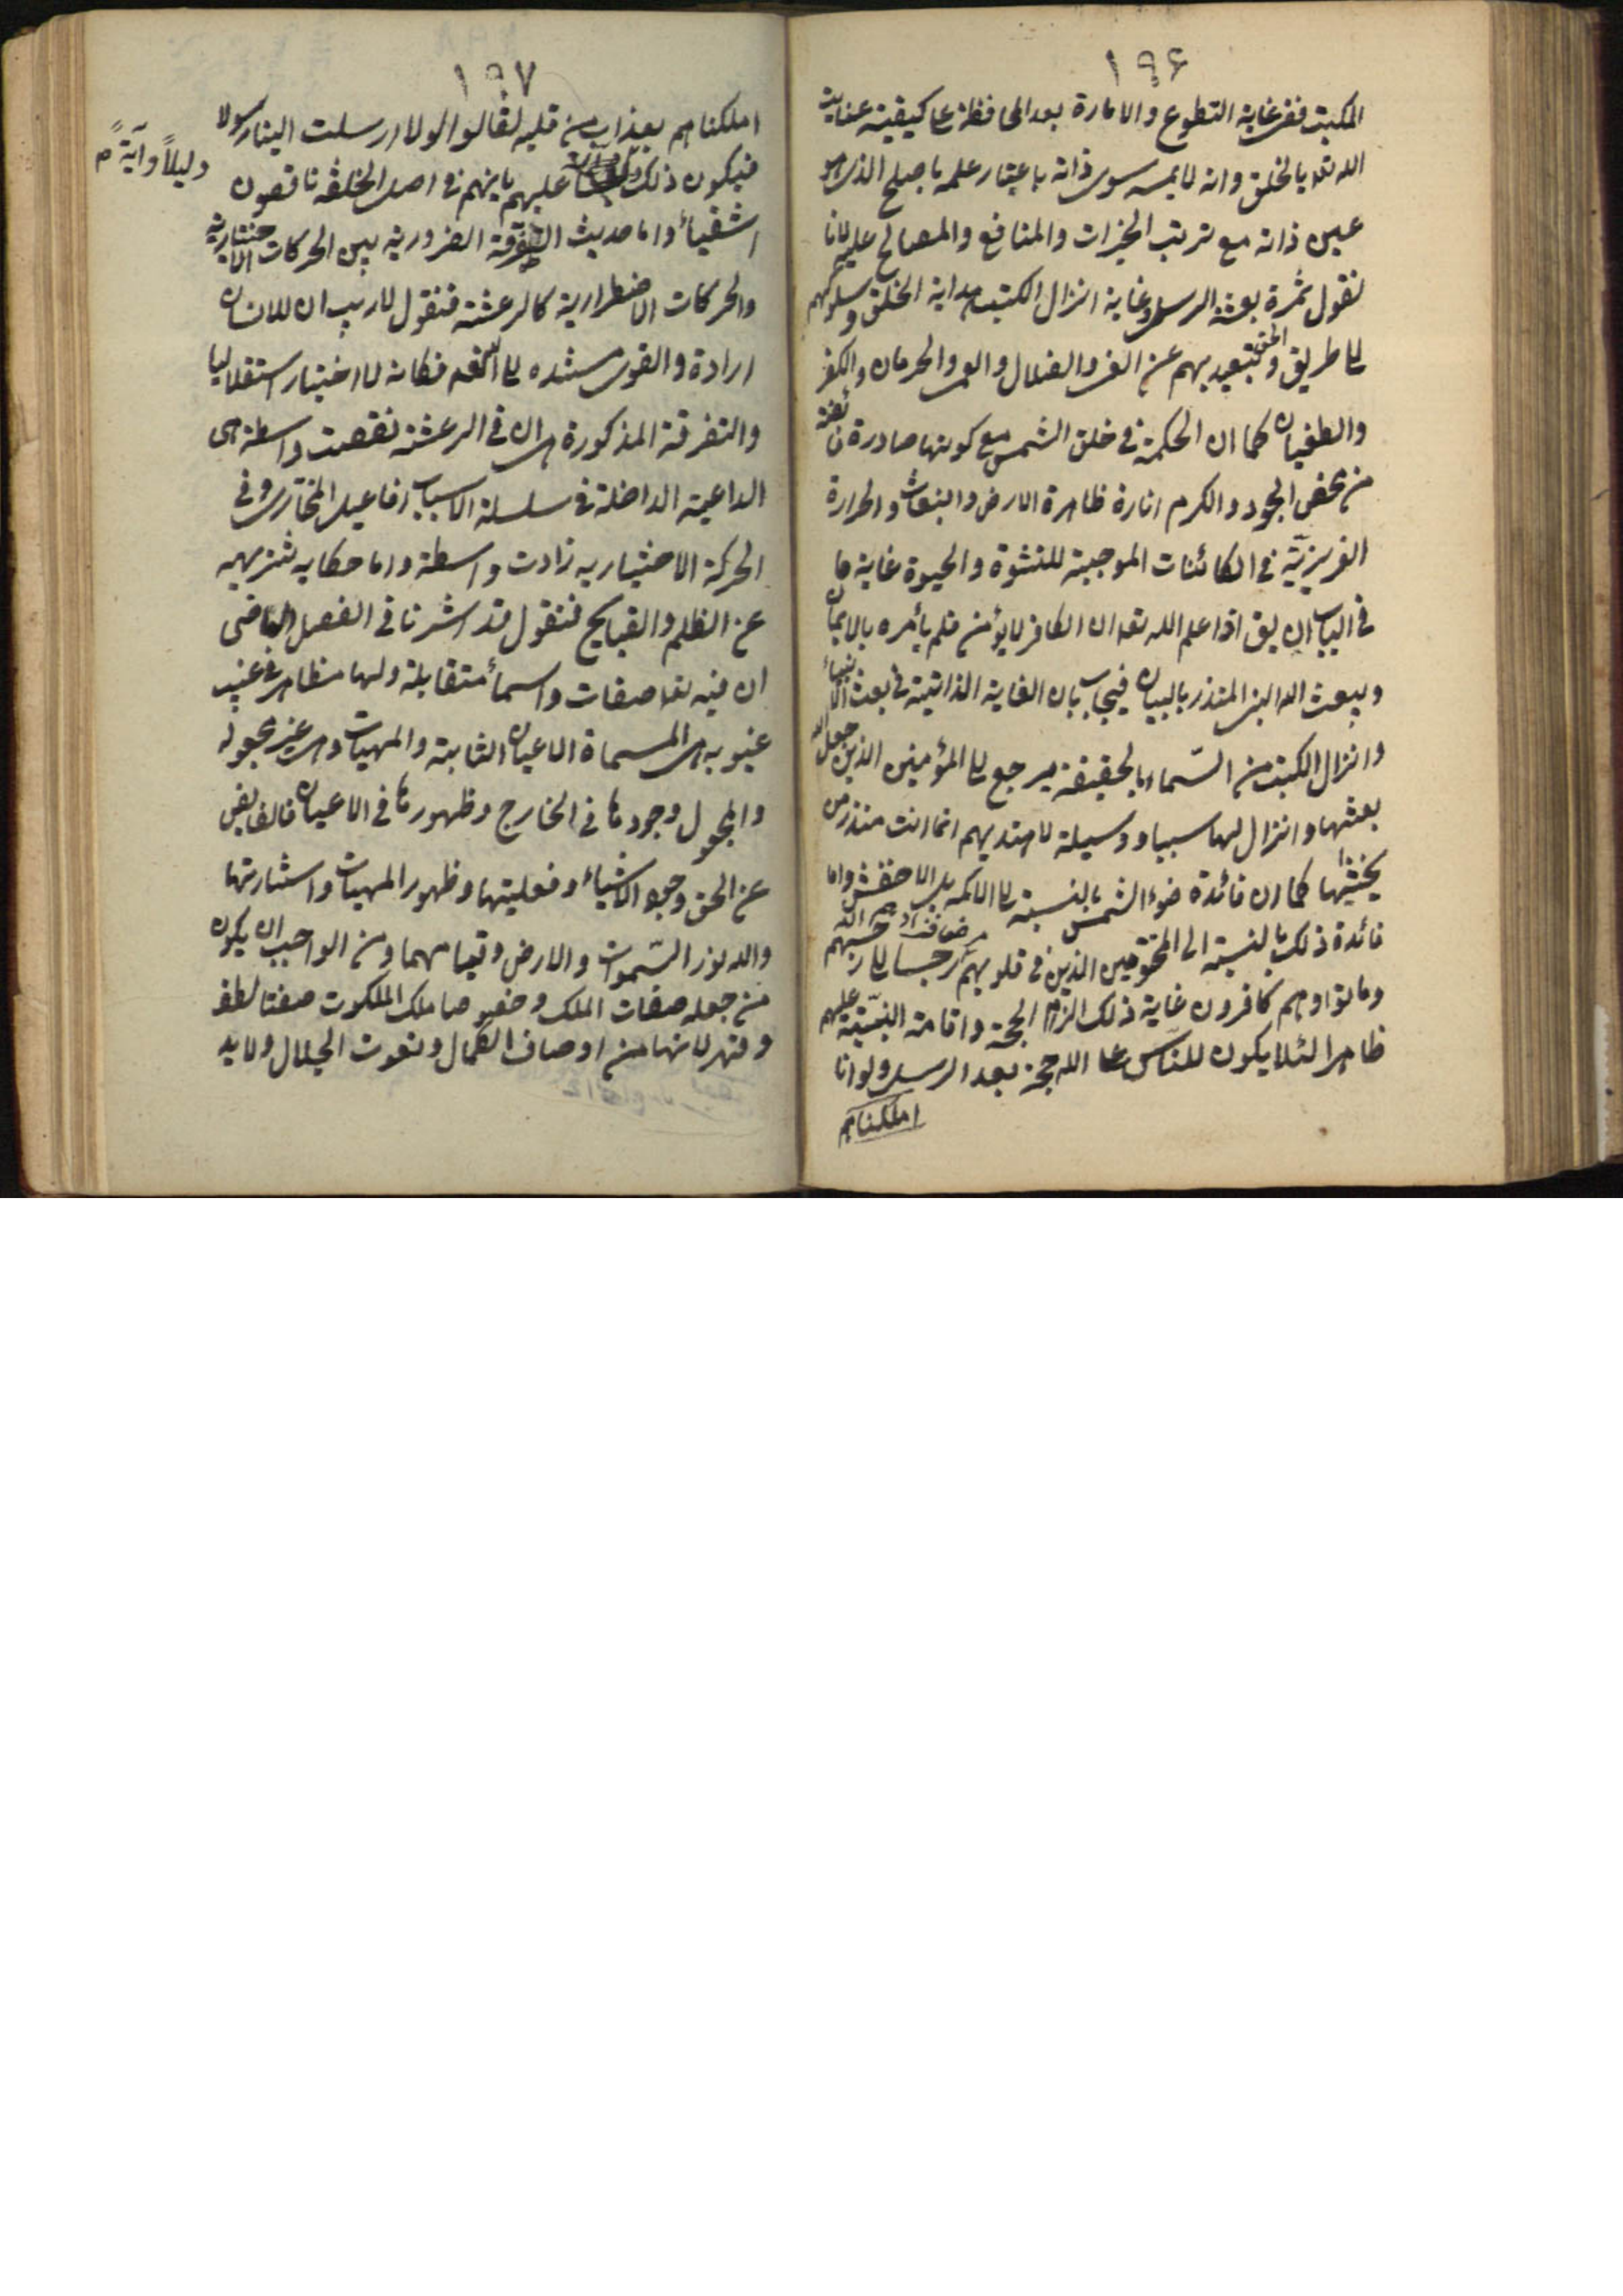 ١٩۶
المكتب ففى غاية التطوع والامارة بعد المحافظة على كيفية عناية
الله تعد بالخلق وانه لا سوى ذاته باعتبار علمه الذى هو
عين ذاته مع ترتب الخيرات والمنافع والمصالح عليه لانا
نقول ثمرة بعثة الرسل وغاية انزال الكتب هداية الخلق وسلوكهم
طريق الحق وتبعيد بهم عن الغى والضلال والحرمان والكفر
والطغيان كما ان الحكمة فى خلق الشمس مع كونها صادرة فائضة
من محض الجود والكرم انارة ظاهرة الارض وانبعاث والحرارة
الغريزية فى الكائنات الموجبة للنشوة والحيوة غاية ما
فى الباب ان يق اذا علم الله تعد ان الكافر لا يؤمن فلم يأمره بالايمان
ويبعث اليه النبى المنذر بالبيان فيجاب بان الغاية الذاتية فى بعث الانبياء
وانزال الكتب من السماء بالحقيقة يرجع الى المؤمنين الذين جعل الله
بعثها وانزالها سببا ووسيلة لاهتديهم انما انت منذر من
يخشيها كما ان فائدة ضوء الشمس بالنسبة الى الاكمه بل الاخفش واما
فائدة ذلك بالنسبة الى المختومين الذين فى قلوبهم مرض فزادهم الله رجسا الى رجسهم
وماتوا وهم كافرون غاية ذلك الزام الحجة واقامة البينة عليهم
ظاهرا لئلا يكون للناس على الله حجة بعد الرسل ولو انا
اهلكناهم
١٩٧
اهلكناهم بعذاب من قبله لقالوا لولا ارسلت الينا رسولا
فيكون ذلك عليهم بانهم فى اصل الخلقة ناقصون
دليلاً وآيةً م
اشقياء واما حديث التفرقة الضرورية بين الحركات الاختيارية
والحركات الاضطرارية كالرعشة فنقول لا ريب ان للانسان
ارادة والقوى فكانه لا اختيار استقلاليا
والتفرقة المذكورة هى ان فى الرعشة نقصت واسطة هى
الداعية الداخلة فى سلسلة الاسباب افاعيل المختارين وفى
الحركة الاختيارية زادت واسطة واما حكاية تنزيهه
عن الظلم والقبايح فنقول قد اشرنا فى الفصل الماضى
ان فيه تعد صفات واسماء متقابلة ولها مظاهر فى غيب
غيوبه هى المسماة الاعيان الثابتة والمهيات وهى غير مجعولة
والمجعول وجودها فى الخارج وظهورها فى الاعيان فالفايض
عن الحق وجود الاشياء وفعليتها وظهور المهيات واستنارتها
والله نور السموات والارض وقيامهما ومن الواجب ان يكون
من جملة صفات الملك وخصوصا ملك الملكوت صفتا لطف
وقهر لانهما من اوصاف الكمال ونعوت الجلال ولا بد